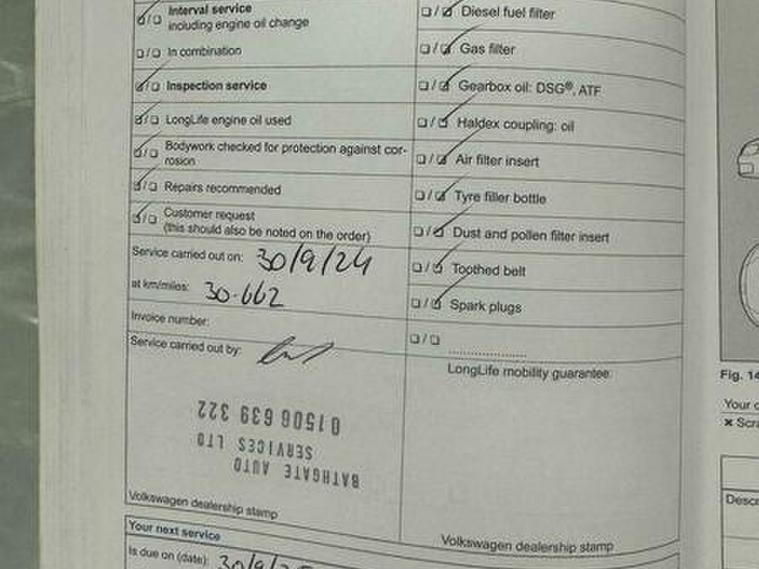 Interval service
including engine oil change
In combination
Inspection service
LongLife engine oil used
Bodywork checked for protection against cor-
rosion
Repairs recommended
Customer request
(this should also be noted on the order)
Service carried out on: 30/9/24
at km/miles: 30.662
Invoice number:
Service carried out by:
BATHGATE AUTO
SERVICES LTD
01506 639 322
Volkswagen dealership stamp
Your next service
Is due on (date): 30/9/25
Diesel fuel filter
Gas filter
Gearbox oil: DSG®, ATF
Haldex coupling: oil
Air filter insert
Tyre filler bottle
Dust and pollen filter insert
Toothed belt
Spark plugs
LongLife mobility guarantee:
Volkswagen dealership stamp
Fig. 14
Your